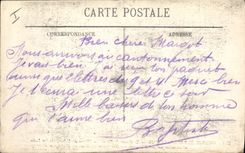 CARTE POSTALE
CORRESPONDANCE ADRESSE
Bien chère Margot
Nous arrivons au cantonnement
Je vais bien j'ai reçu ton paquet
ainsi que lettres du 9 et Merci bien
Je t'envoie une lettre ce soir
Mille baisers de ton homme
qui t'aime bien
Baptiste